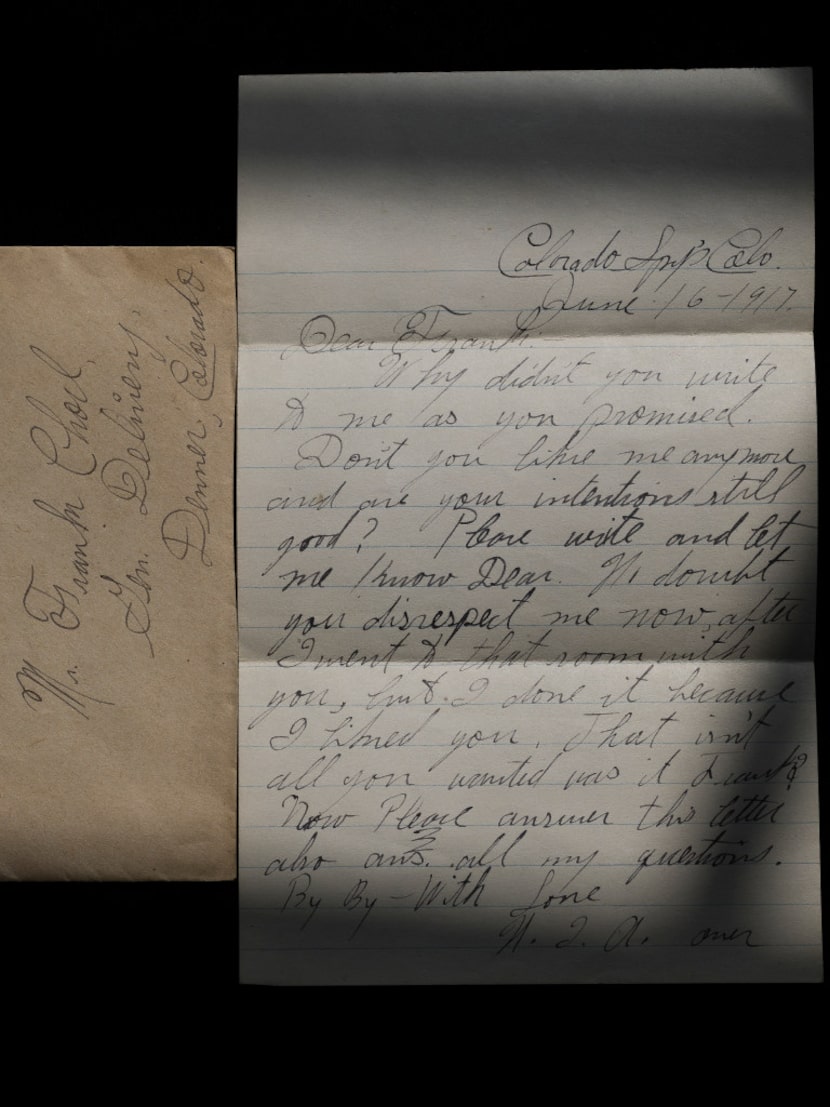 Mr. Frank Choul,
Gen. Delivery,
Denver, Colorado.
Colorado Spg's Colo.
June 16-1917.
Dear Frank.
Why didn't you write
to me as you promised.
Don't you like me anymore
and are your intentions still
good? Please write and let
me know Dear. No doubt
you disrespect me now, after
I went to that room with
you, but I done it because
I liked you. That isn't
all you wanted was it Frank?
Now Please answer this letter
also ans. all my questions.
By By - With Love
N. I. A. over